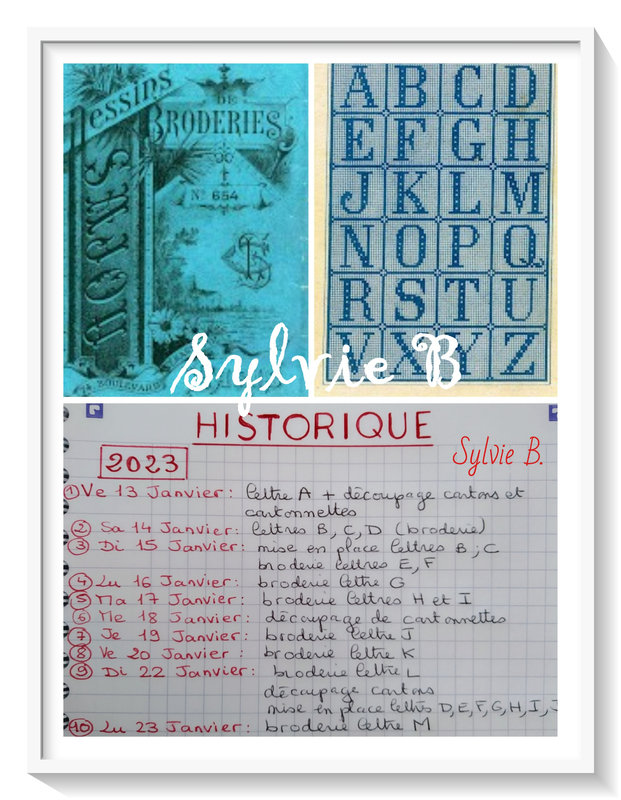 Dessins
DE
BRODERIES
N° 654
SAJOU
BOULEVARD
A B C D
E F G H
J K L M
N O P Q
R S T U
V X Y Z
Sylvie B
HISTORIQUE
Sylvie B.
2023
① Ve 13 Janvier : lettre A + découpage cartons et
cartonnettes
② Sa 14 Janvier : lettres B, C, D (broderie)
③ Di 15 Janvier : mise en place lettres B, C
broderie lettres E, F
④ Lu 16 Janvier : broderie lettre G
⑤ Ma 17 Janvier : broderie lettres H et I
⑥ Me 18 Janvier : découpage de cartonnettes
⑦ Je 19 Janvier : broderie lettre J
⑧ Ve 20 Janvier : broderie lettre K
⑨ Di 22 Janvier : broderie lettre L
découpage cartons
mise en place lettres D, E, F, G, H, I, J
⑩ Lu 23 Janvier : broderie lettre M